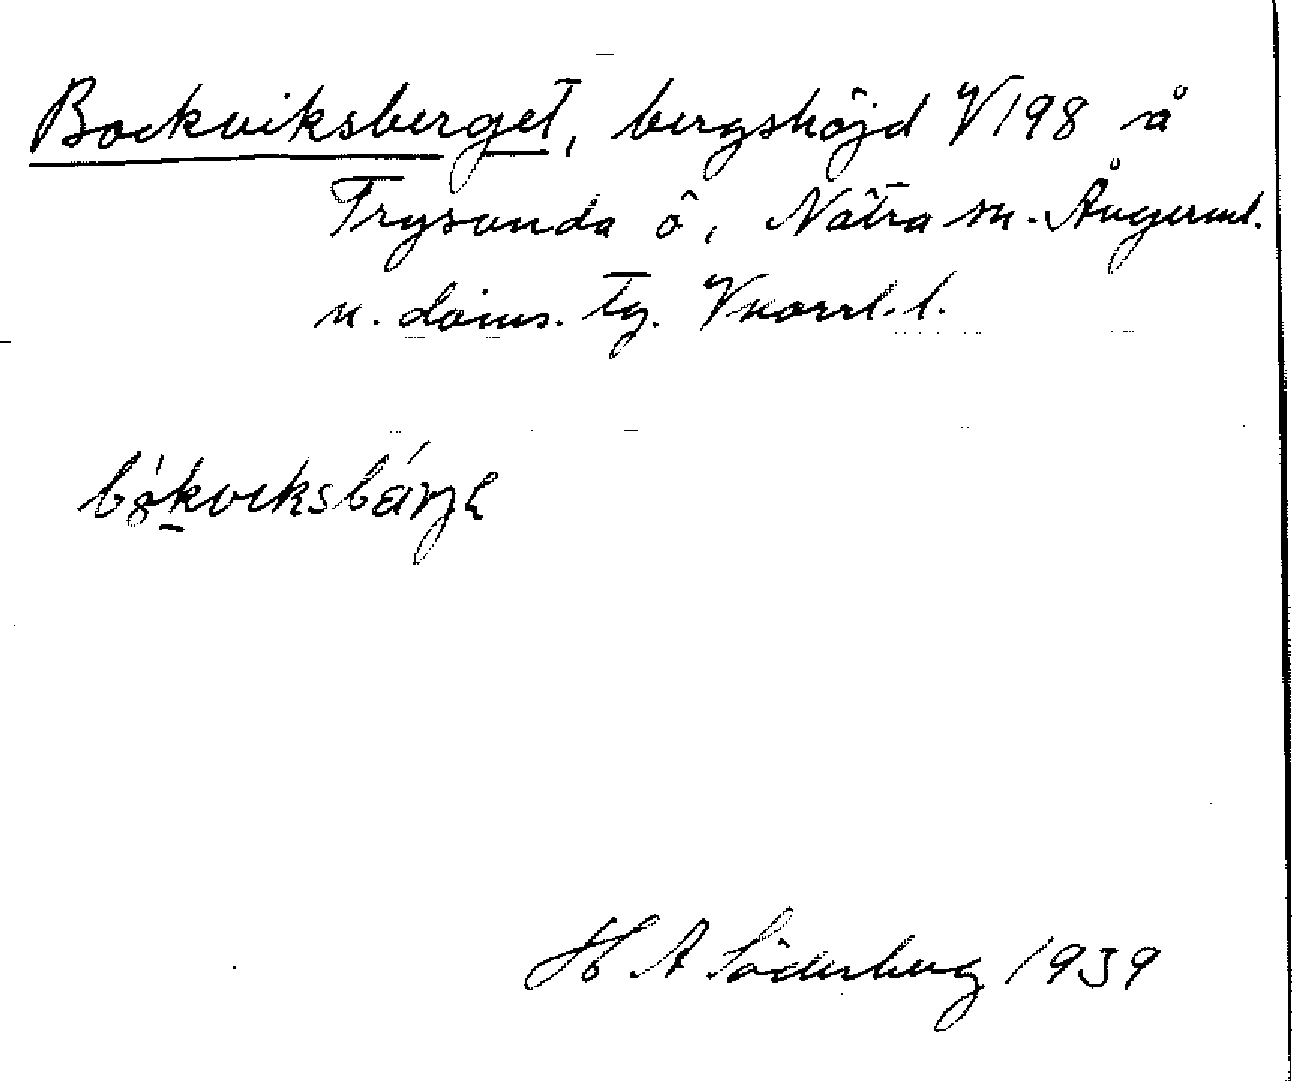 Bockviksberget, bergshöjd V198 å
Trysunda ö, Nätra sn. Ångerml.
n. doms. Tg. Vnorrl. l.
bo̊kvɩksbárjɛ
H A Söderberg 1939